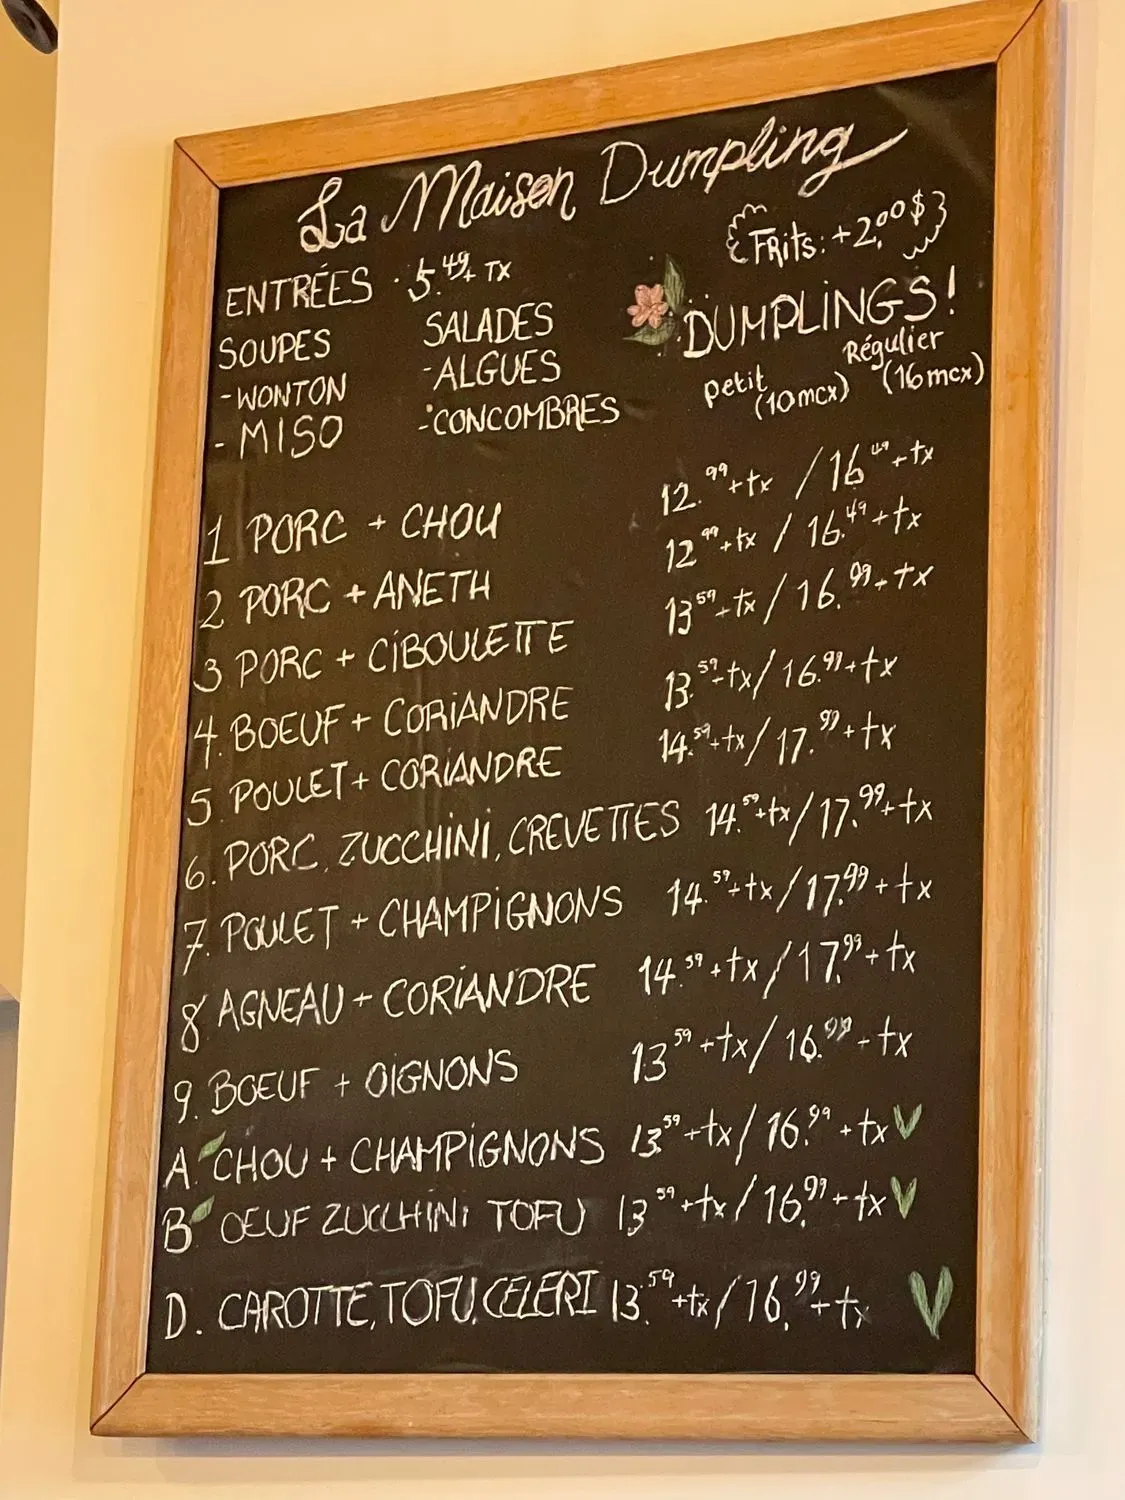 La Maison Dumpling
Frits: +2.00$
ENTRÉES 5.49+ TX
SOUPES
-WONTON
- MISO
SALADES
-ALGUES
-CONCOMBRES
DUMPLINGS!
petit (10mcx) Régulier (16mcx)
1 PORC + CHOU 12.99+tx / 16.49+tx
2 PORC + ANETH 12.99+tx / 16.49+tx
3 PORC + CIBOULETTE 13.59+tx / 16.99+tx
4. BOEUF + CORIANDRE 13.59+tx / 16.99+tx
5 POULET + CORIANDRE 14.59+tx / 17.99+tx
6. PORC, ZUCCHINI, CREVETTES 14.59+tx / 17.99+tx
7. POULET + CHAMPIGNONS 14.59+tx / 17.99+tx
8 AGNEAU + CORIANDRE 14.59+tx / 17.99+tx
9. BOEUF + OIGNONS 13.59+tx / 16.99+tx
A. CHOU + CHAMPIGNONS 13.59+tx / 16.99+tx V
B OEUF ZUCCHINI TOFU 13.59+tx / 16.99+tx V
D. CAROTTE, TOFU, CELERI 13.59+tx / 16.99+tx V